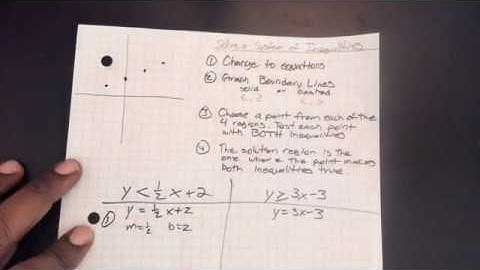 Solve a System of Inequalities
① Change to equations
② Graph Boundary Lines
solid or dashed
③ Choose a point from each of the
4 regions. Test each point
with BOTH Inequalities
④ The solution region is the
one where the point makes
both inequalities true.
y < 1/2 x + 2
y ≥ 3x - 3
① y = 1/2 x + 2
y = 3x - 3
m = 1/2 b = 2